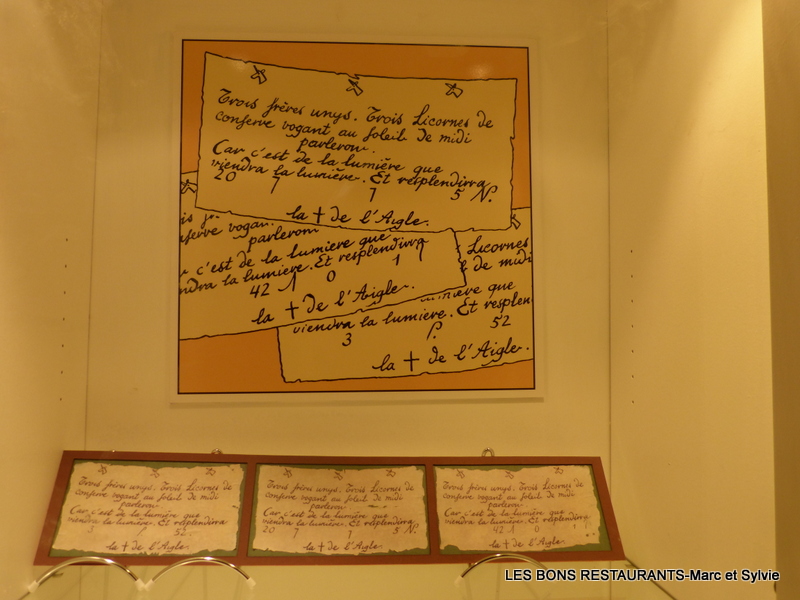 Trois frères unys. Trois Licornes de
conserve vogant au soleil de midi
parleront.
Car c'est de la lumière que
viendra la lumière. Et resplendira
20 7 7 5 N.
la † de l'Aigle.
serve vogan.
parleront
c'est de la lumiere que
ndra la lumiere. Et resplendira
42 1 0 1
la † de l'Aigle.
Licornes
de midi
que
viendra la lumiere. Et resplen
3 52
la † de l'Aigle.
Trois frères unys. Trois Licornes de
conserve vogant au soleil de midi
parleront
Car c'est de la lumière que
viendra la lumière. Et resplendira
3 52
la † de l'Aigle
Trois frères unys. Trois Licornes de
conserve vogant au soleil de midi
parleront
Car c'est de la lumière que
viendra la lumière. Et resplendira
20 7 7 5 N.
la † de l'Aigle.
Trois frères unys. Trois Licornes de
conserve vogant au soleil de midi
parleront
Car c'est de la lumière que
viendra la lumière. Et resplendira
42 1 0
la † de l'Aigle.
LES BONS RESTAURANTS-Marc et Sylvie